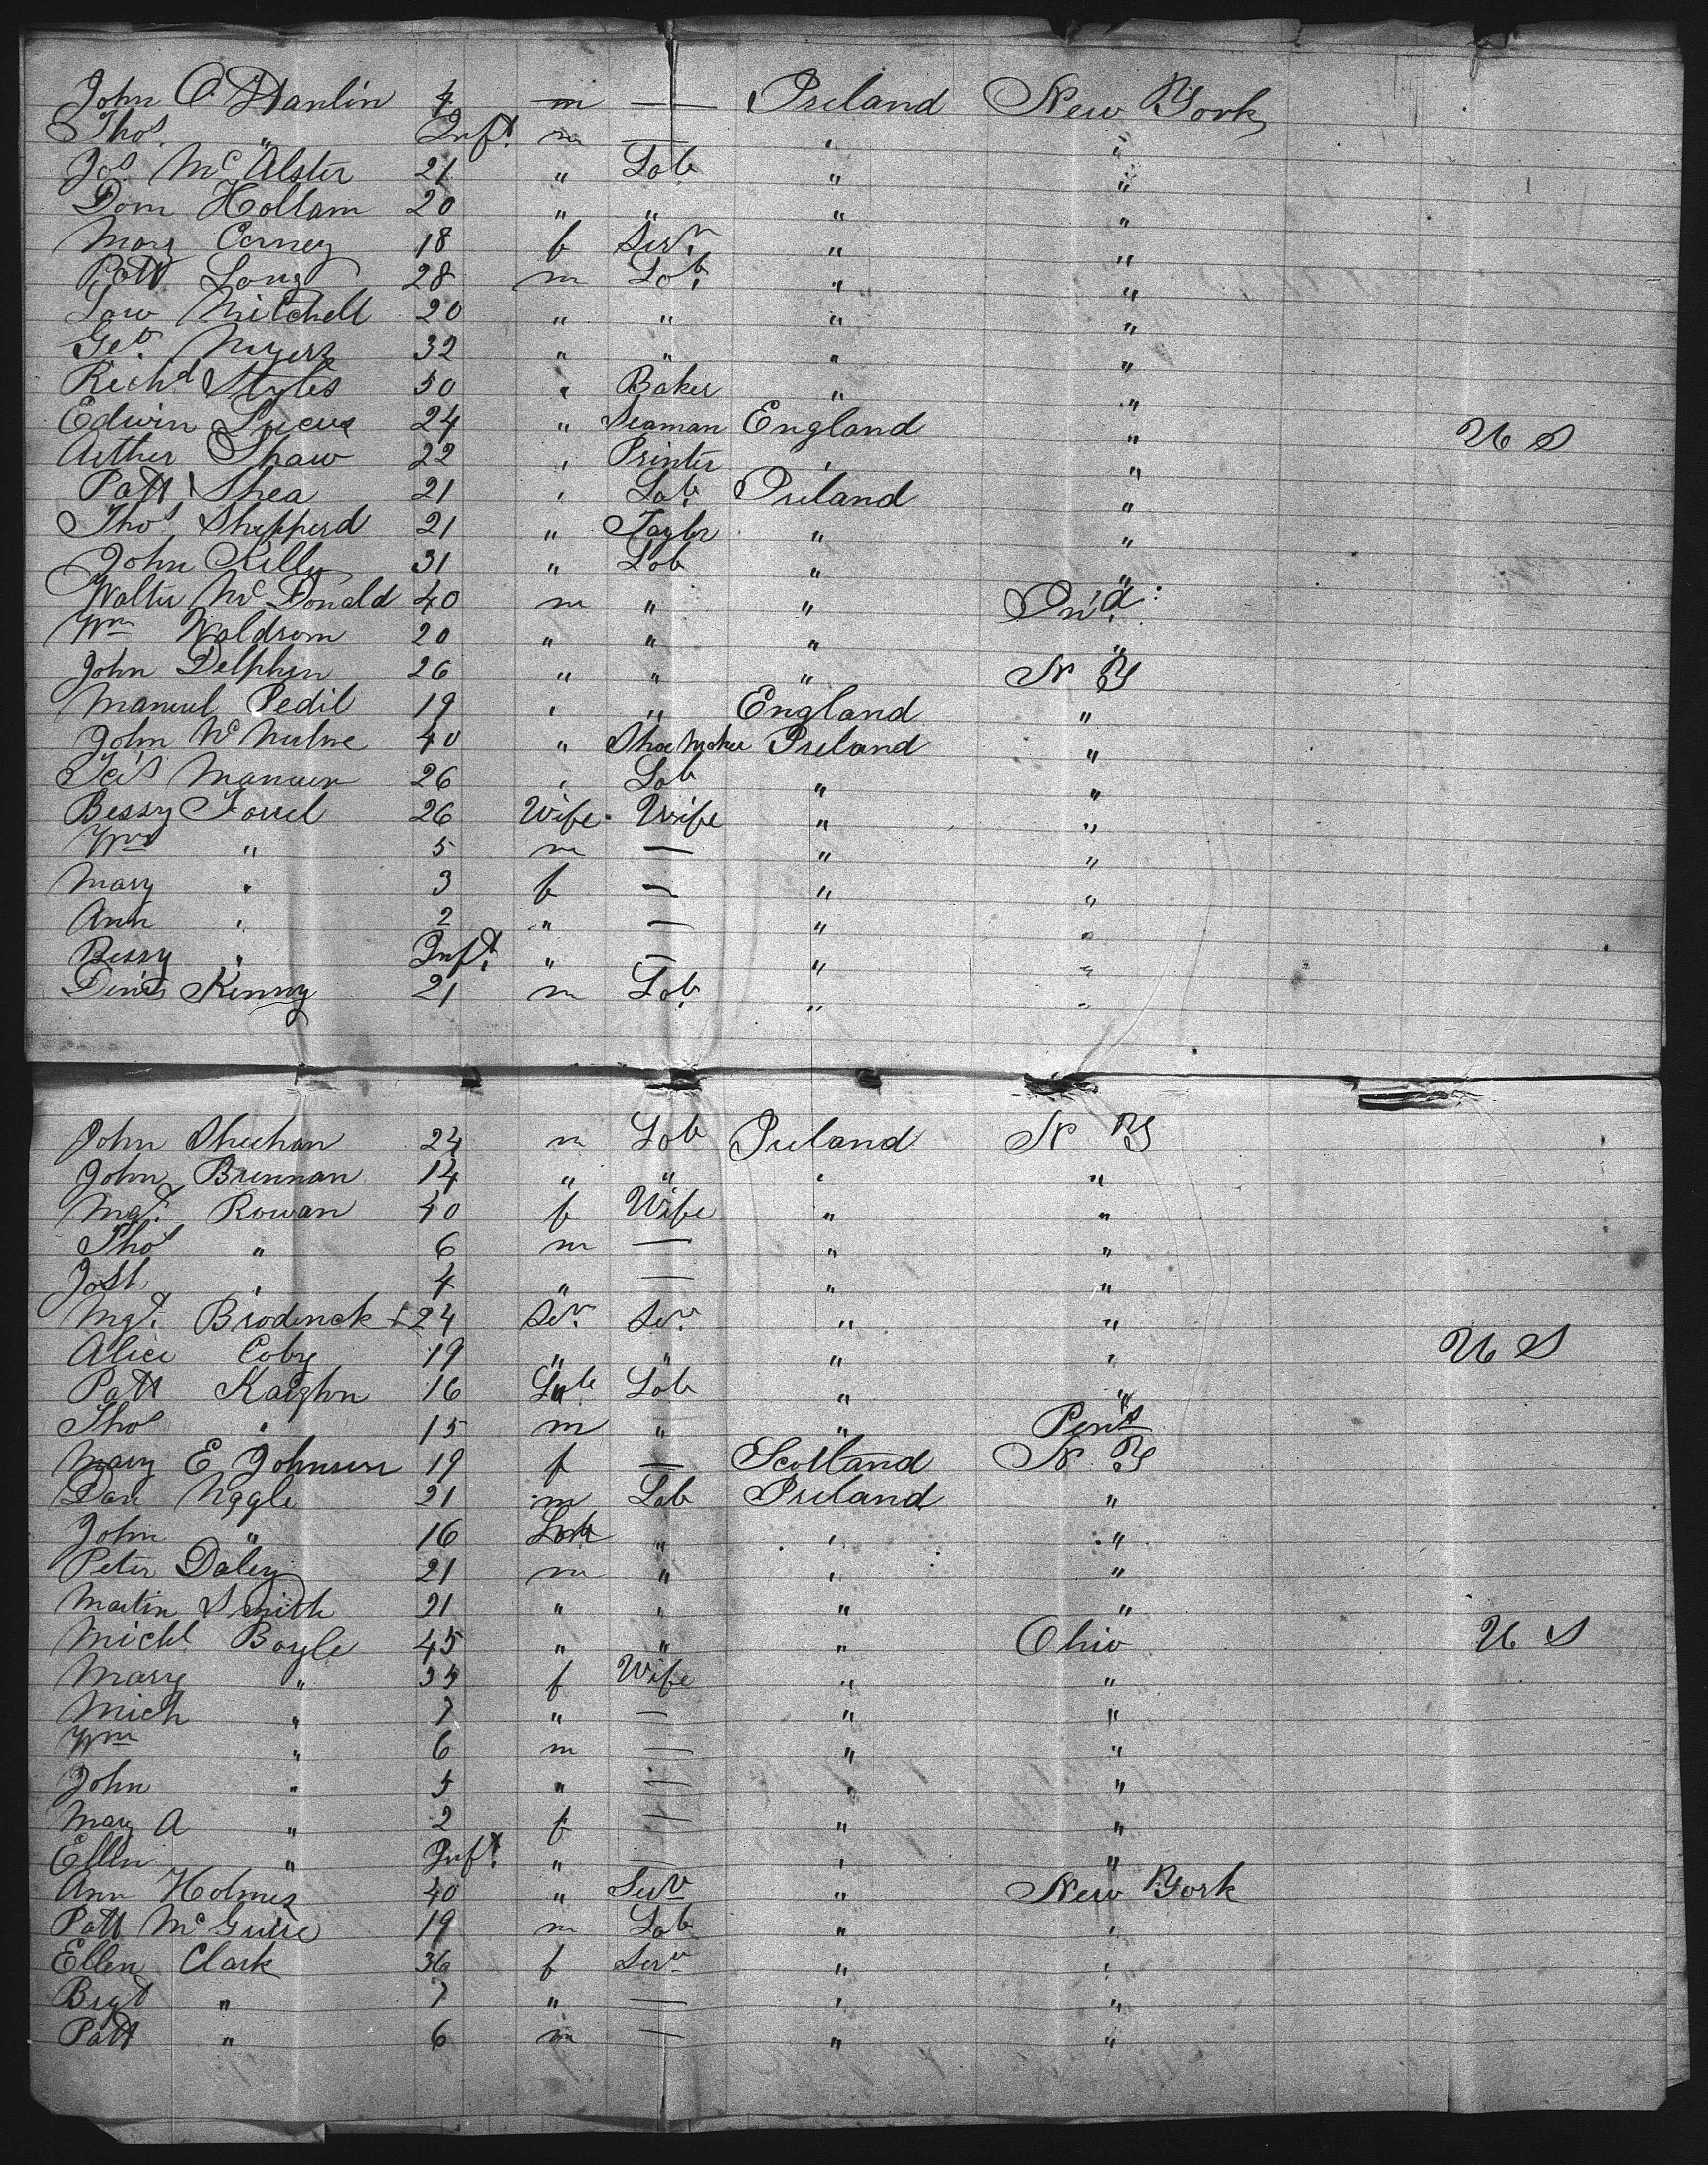 John O Hanlin 4 m — Ireland New York
Thos " Inft. m — " "
Jos McAlster 21 " Lab " "
Dom Hollam 20 " " " "
Marg Carney 18 f Serv. " "
Patt Long 28 m Lab. " "
Law Mitchell 20 " " " "
Geo. Myers 32 " " " "
Richd Styles 50 " Baker " "
Edwin Lucus 24 " Seaman England " U S
Arther Shaw 22 " Printer " "
Patt Shea 21 " Lab. Ireland "
Thos Shepperd 21 " Taylor " "
John Kelly 31 " Lab " "
Walter McDonald 40 m " "
Wm Waldrom 20 " " " "
John Delphin 26 " " " N Y
Manuel Pedil 19 " " England "
John 40 " Shoe Maker Ireland "
26 " Lab " "
Bessy Farrel 26 Wife Wife " "
Wm " 5 m — " "
Mary " 3 f — " "
Ann " 2 " — " "
Bessy " Inft. " — " "
Denis Kenny 21 m Lab. " "
John Sheehan 24 m Lab Ireland N Y
John Brennan 14 " " " "
Mgt. Rowan 40 f Wife " "
Thos " 6 m — " "
Josh " 4 " — " "
Mgt. Broderick + 24 Sev. Sev. " "
Alice Coby 19 " " " " U S
Patt Kaighn 16 Lab Lab " "
Thos " 15 m " " Penn
Mary E Johnson 19 f — Scotland N Y
Dan Nagle 21 m Lab Ireland "
John " 16 Lab " " "
Peter Daley 21 m " " "
Martin Smith 21 " " " "
Michl Boyle 45 " " " Ohio U S
Mary " 35 f Wife " "
Mich " 7 " — " "
Wm " 6 m — " "
John " 5 " — " "
Mary A " 2 f — " "
Ellen " Inft. " — " "
Ann Holmes 40 " Serv " New York
Patt McGuire 19 m Lab " "
Ellen Clark 36 f Serv " "
Bigt " 7 " — " "
Patt " 6 m — " "